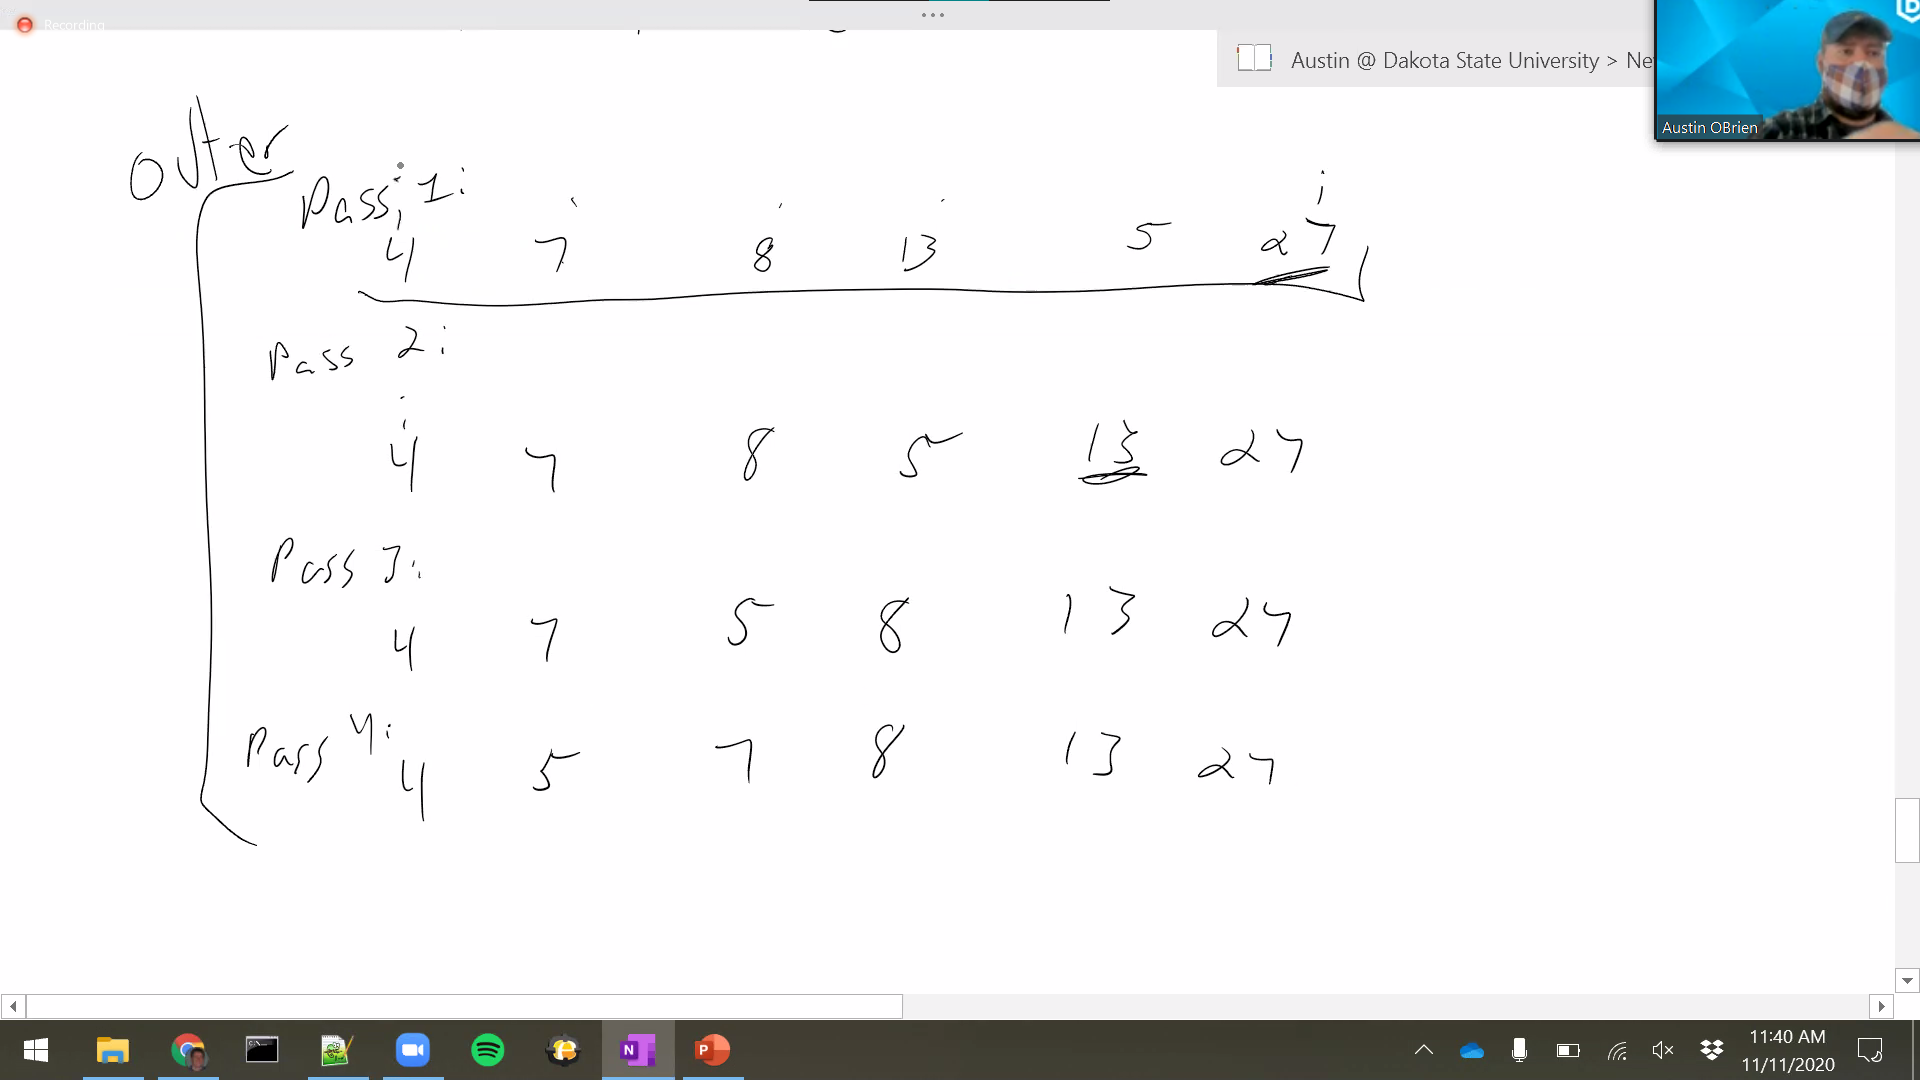 Recording
Austin @ Dakota State University > Ne
Austin OBrien
Outer
Pass 1:
i i
4 7 8 13 5 27
Pass 2:
i
4 7 8 5 13 27
Pass 3:
4 7 5 8 13 27
Pass 4:
4 5 7 8 13 27
11:40 AM
11/11/2020